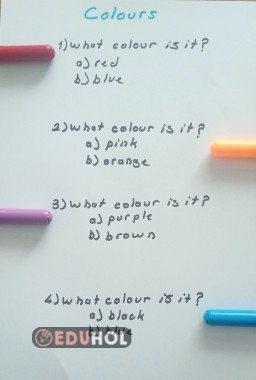 Colours
1) What colour is it?
a) red
b) blue
2) What colour is it?
a) pink
b) orange
3) What colour is it?
a) purple
b) brown
4) What colour is it?
a) black
b) blue
EDUHOL